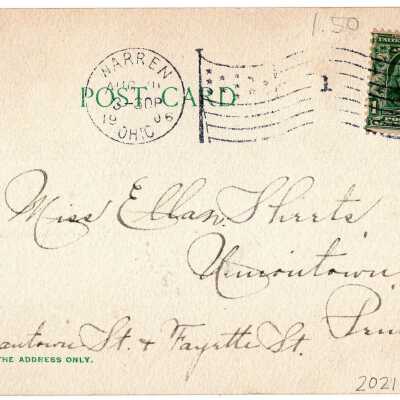 1.50
WARREN
AUG 11
3-30P
1906
OHIO
POST CARD
1
Miss Ella Sheets
Uniontown
Penn
town St. & Fayette St.
THE ADDRESS ONLY.
2021